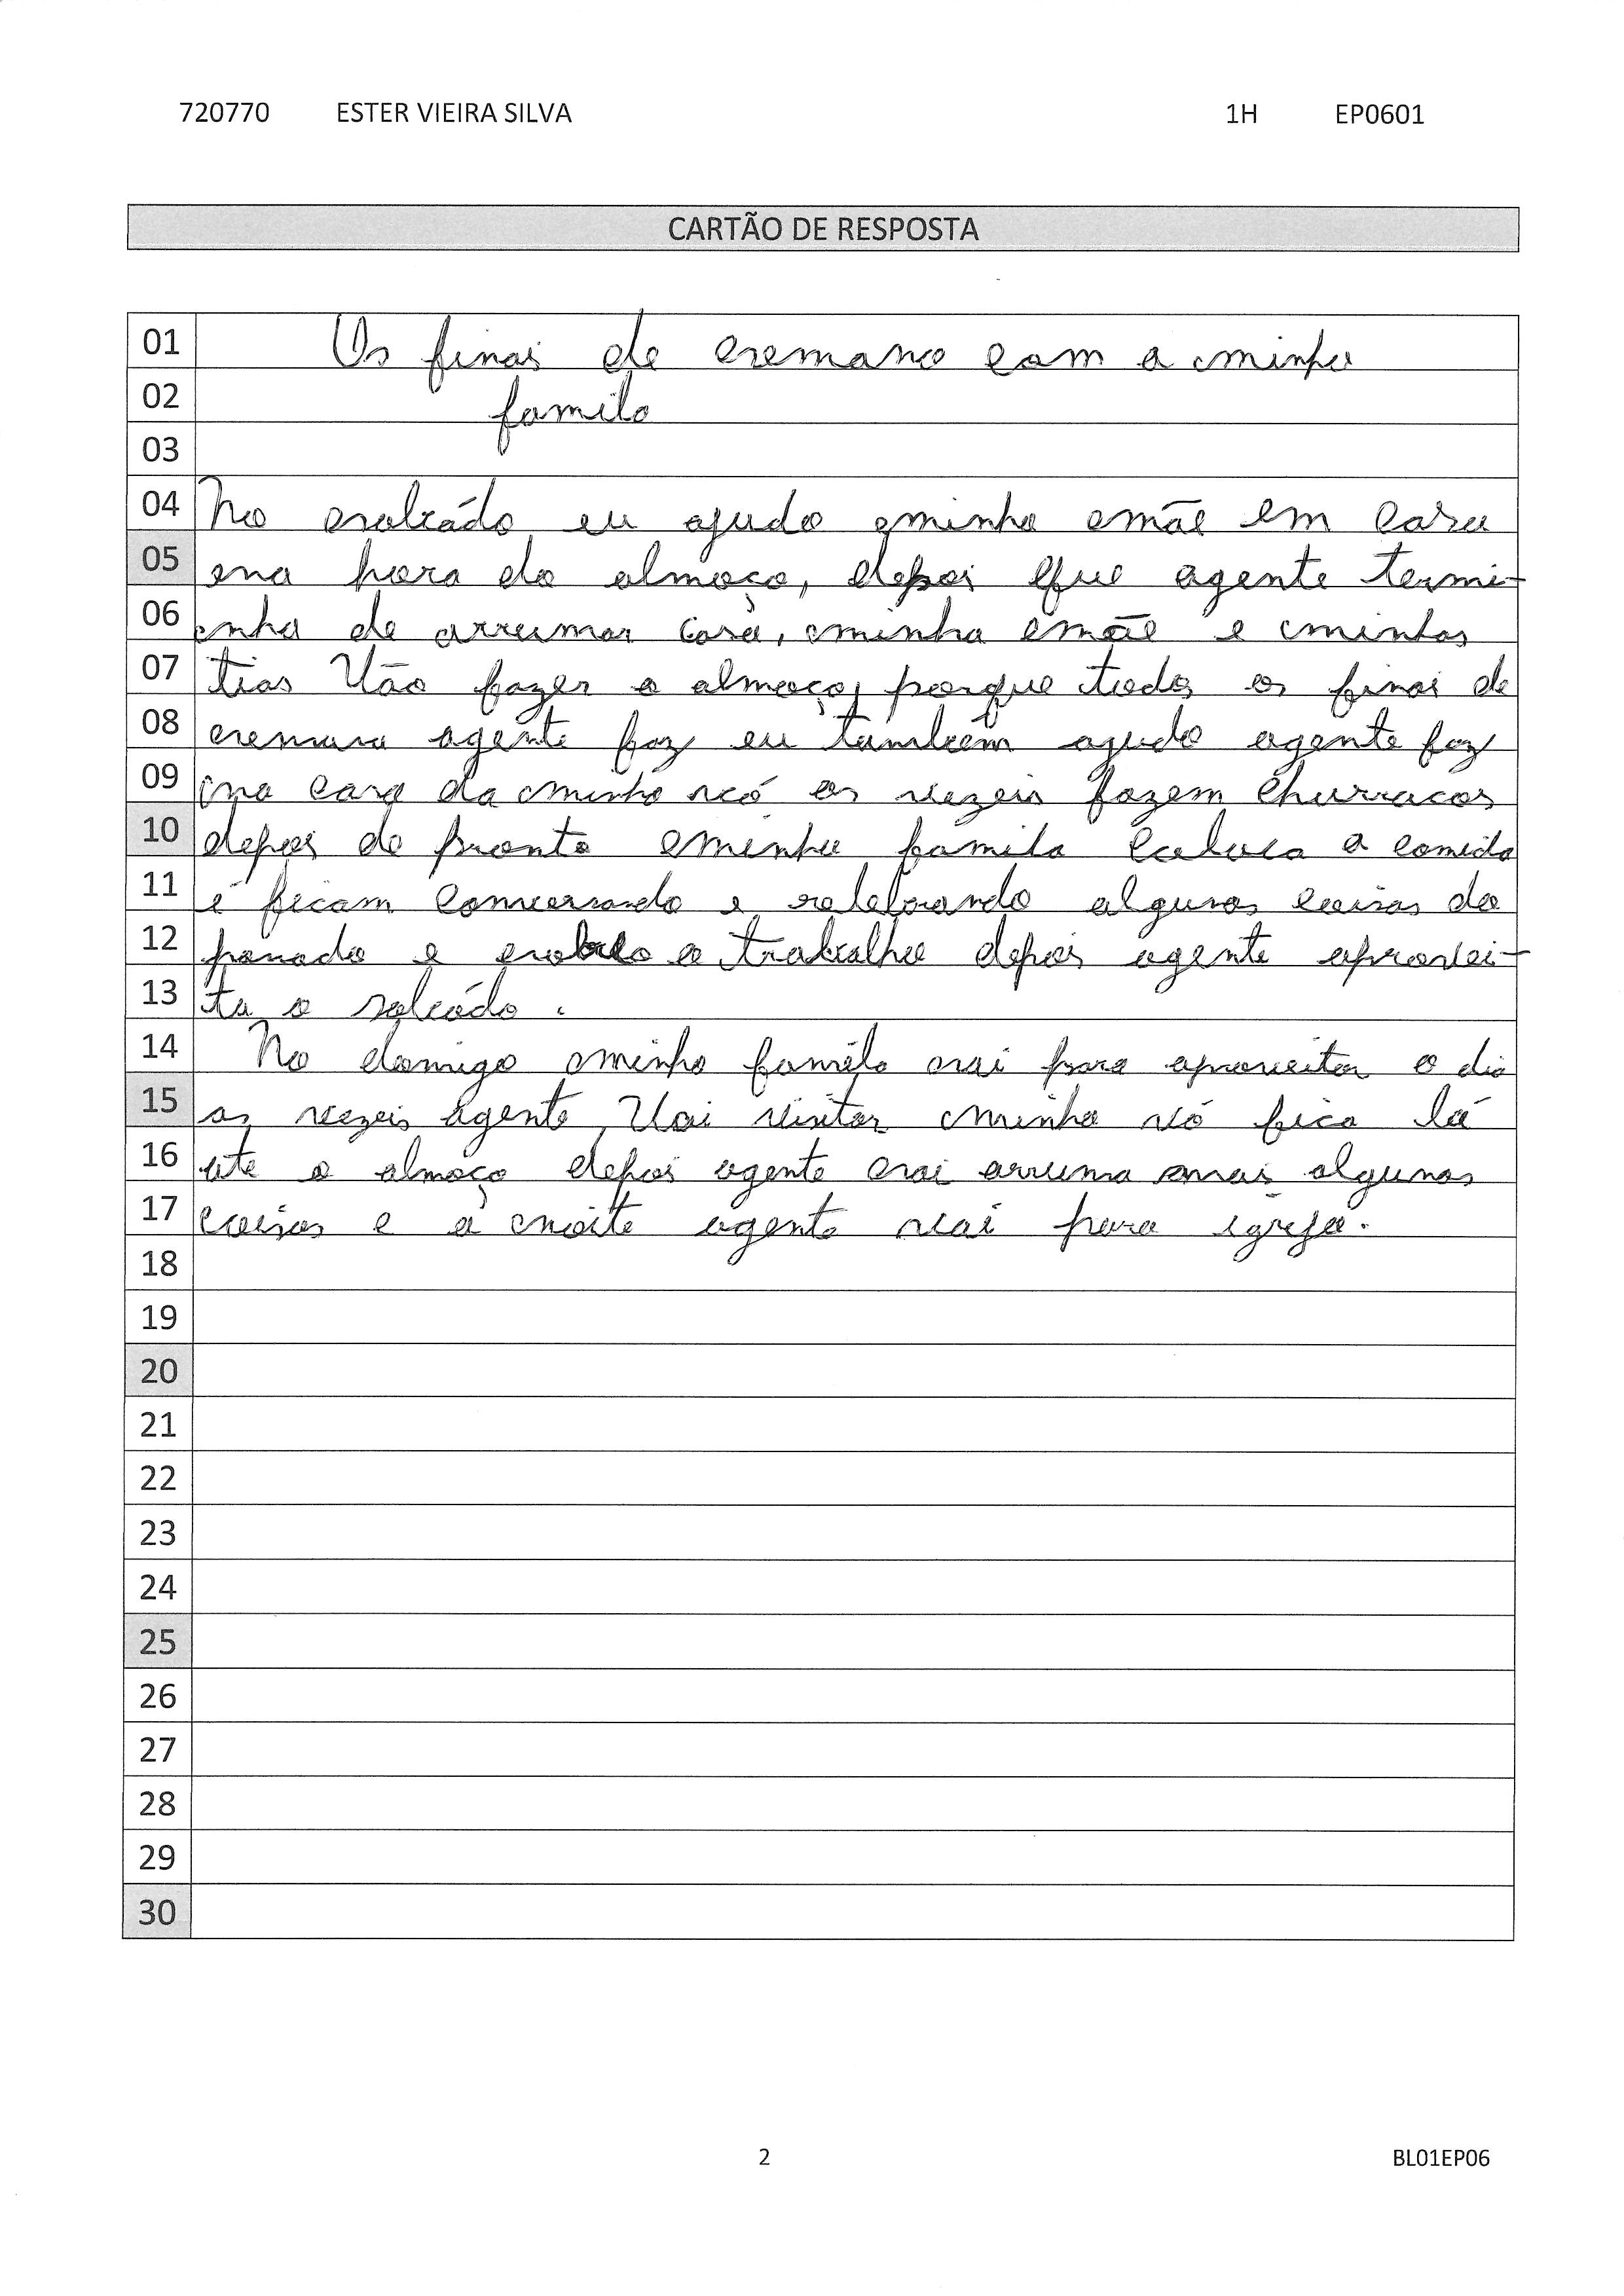 720770 ESTER VIEIRA SILVA 1H EP0601
CARTÃO DE RESPOSTA
01 Os finais de semana com a minha
02 famila
03
04 No sabádo eu ajudo minha mãe em casa
05 na hora do almoço, depoi que agente termi-
06 nha de arrumar casa, minha mãe e minhas
07 tias Vão fazer o almoço, porque todos os finai de
08 semana agente faz eu também ajudo agente faz
09 na casa da minha vó as vezeis fazem churrascos
10 depois de pronto minha famila coloca a comida
11 é ficam conversando e relebrando algumas coisas do
12 passado e sobre o trabalho depois agente aprovei-
13 ta o sabádo.
14 No domigo minha famila vai para aproveitar o dia
15 as vezeis agente Vai visitar minha vó fica lá
16 ate o almoço depois agente vai arruma mais algumas
17 coisas e a noite agente vai para igreja.
18
19
20
21
22
23
24
25
26
27
28
29
30
2 BL01EP06